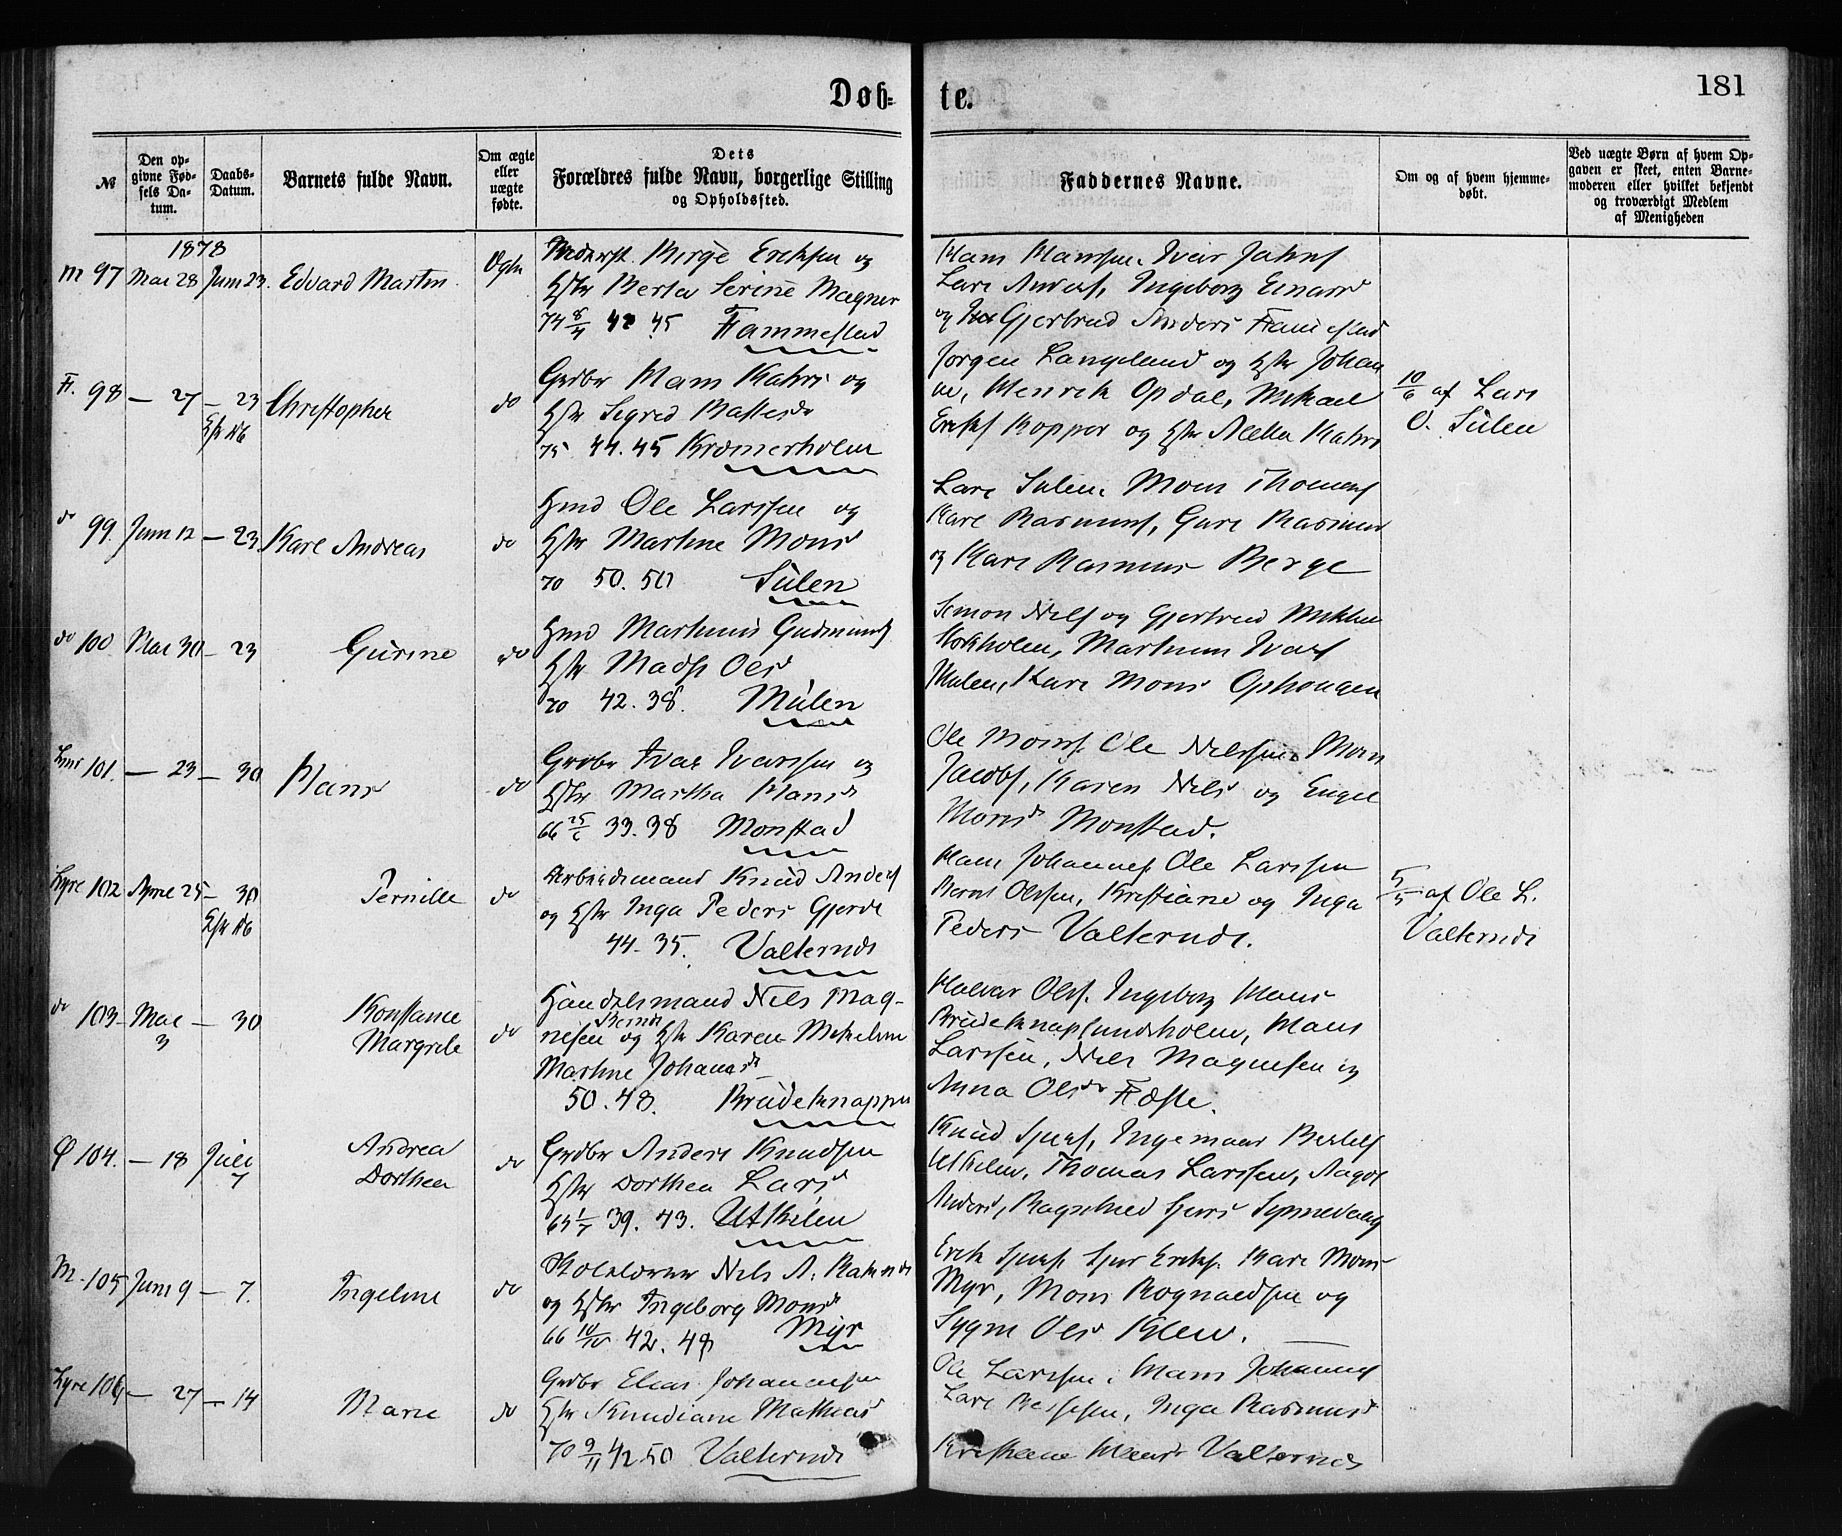 Døb-
te.
181
№
Den op-
givne Fød-
sels Da-
tum.
Daabs-
Datum.
Barnets fulde Navn.
Om ægte
eller
uægte
fødte.
Dets
Forældres fulde Navn, borgerlige Stilling
og Opholdssted.
Faddernes Navne.
Om og af hvem hjemme-
døbt.
Ved uægte Børn af hvem Op-
gaven er skeet, enten Barne-
moderen eller hvilket bekjendt
og troværdigt Medlem
af Menigheden
1878
M 97 Mai 28 Juni 23. Edvard Martin Ægte Birge Eriksen og
Hstr Berta Serine Magner
74 42 45 Fammestad
Hans Hanssen, Iver Jahns
Lars Anders, Ingeborg Einars
og Gjertrud Anders
F. 98 — 27 — 23 Christopher do Grdbr Hans Kahrs og
Hstr Sigrid Battesdr
75 44. 45 Kræmerholm
Jørgen Langeland og Hstr Johan
ne, Henrik Opdal, Mikael
og Hstr Kahrs
10/6 af Lars
O. Sulen
do 99. Juni 12 — 23 Karl Andreas do Hmd Ole Larssen og
Hstr Martine Mons
70 50. 50 Sulen
Lars Sulen, Mons Thomas
Rasmus, Guri Rasmus
og Kari Rasmus Berge
do 100 Mai 30 — 23 Gurine do Hmd Martinus Gudmunds
Hstr Madsi Ols
70 42. 38. Mulen
Simon Nels og Gjertrud
Martinus Ivars
Mulen, Kari Mons Ophougen
101. — 23 — 30 Hans do Grdbr Ivar Iversen og
Hstr Martha Hansdr
66 25/6 33. 38 Monstad
Ole Mons, Ole Nilssen, Mons
Jacobs, Karen Nils og Engel
Monsdr Monstad.
Lyre 102 April 25 — 30 Pernille do Arbeidsmand Knud Anders
og Hstr Inga Peders Gjerde
44. 35. Valternds
Hans Johannes, Ole Larssen
Bernt Olssen, Kristiane og Inga
Peders Valternds.
5/5 af Ole L.
Valternds
do 103 Mai 3 — 30 Konstance
Margrete do Handelsmand Nils Mag-
nesen og Hstr Karen Mikeline
Martine Johansdr
50. 48. Brudeknappen
Halvor Ols, Ingeborg Hans
Brudeknapsundsholm, Hans
Larssen, Nils Magnesen og
Anna Olsdr Fæste.
Ø 104. — 18 Juli 7 Andrea
Dorthea do Grdbr Anders Knudsen
Hstr Dorthea Larsdr
65 1/7 39. 43. Utkilen
Knud Sjurs, Ingemaar
Utkilen, Thomas Larssen,
Anders, Ragnhild Sjurs Synnevaag
M. 105 Juni 9 — 7. Ingeline do Skolelærer Nils A.
og Hstr Ingeborg Monsdr
66 10/10 42. 48 Myr
Erik Sjurs, Sjur Eriks, Kari Mons
Myr, Mons Rognaldsen og
Ols Klew.
Lyre 106 — 27 — 14 Marie do Grdbr Elias Johannesen
Hstr Knudiane Mathias
70 9/11 42 50 Valternds
Ole Larssen, Hans Johannes
Lars Inga Rasmusdr
Kristiane Hansdr Valternds